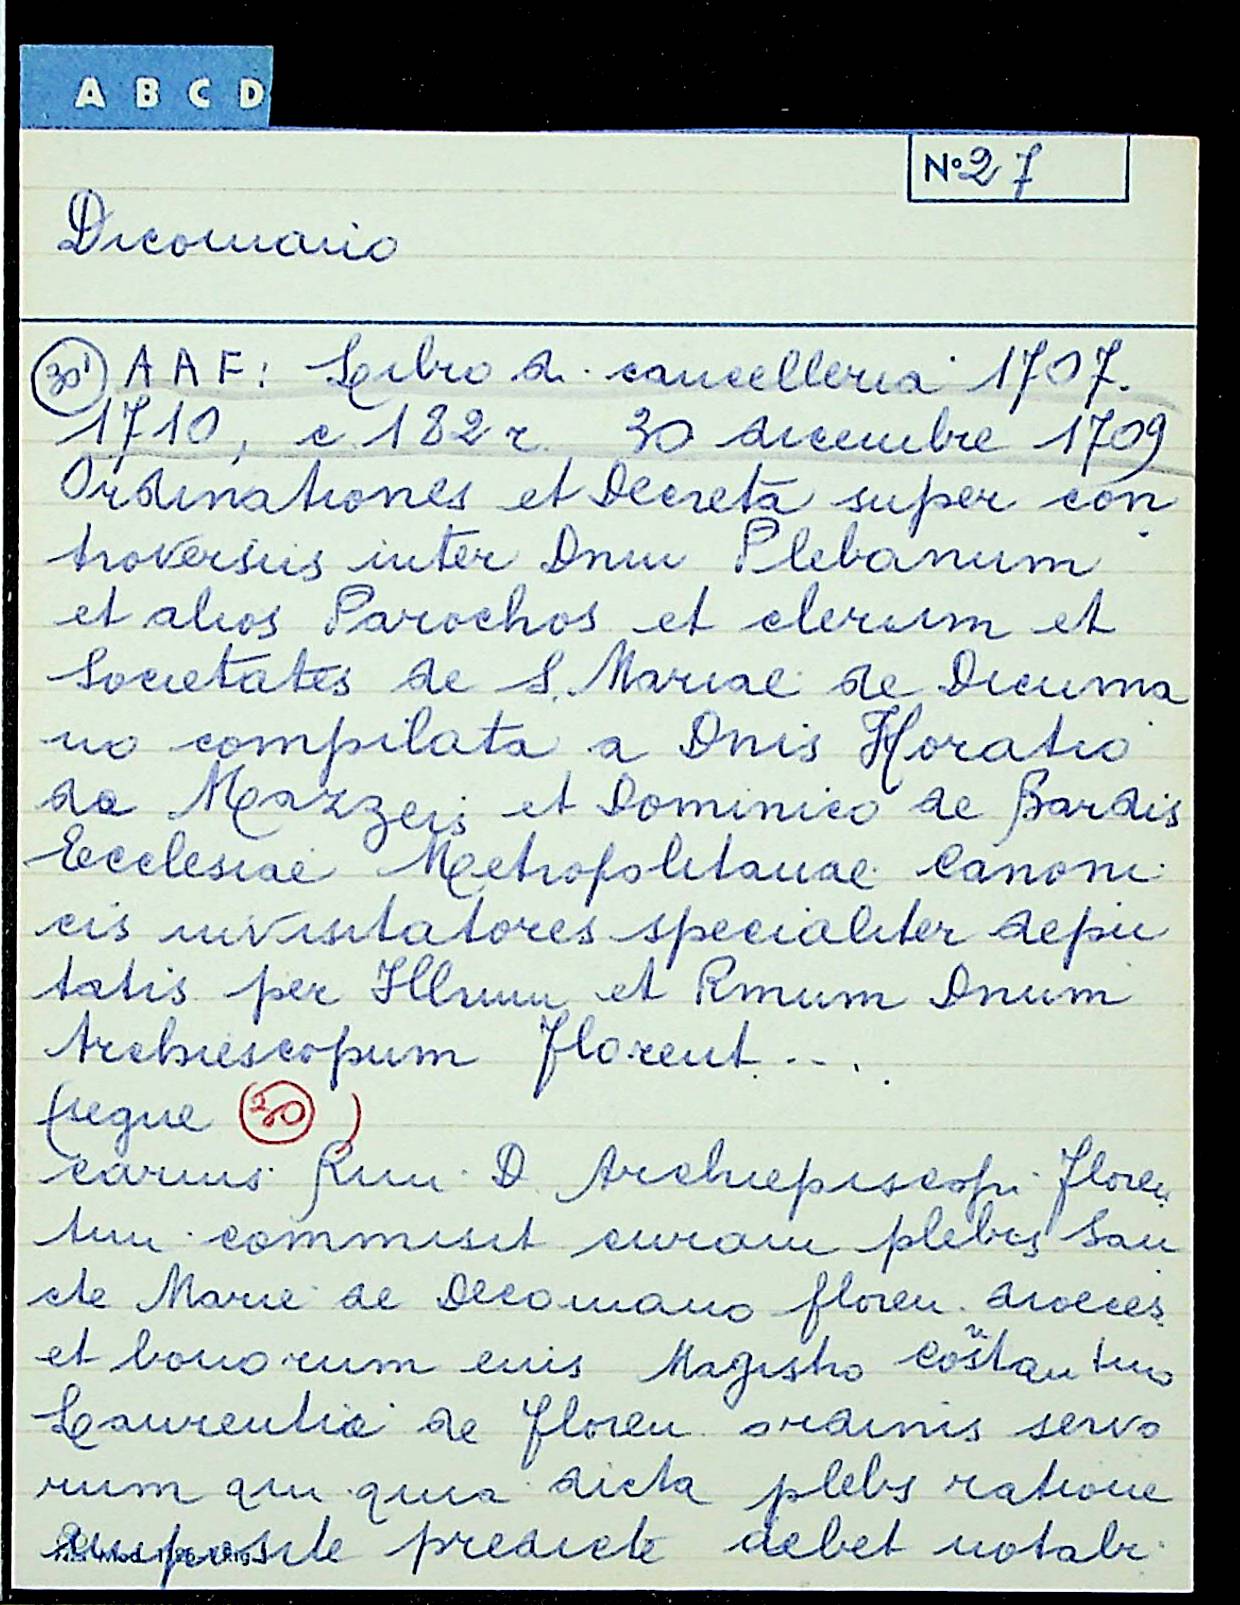 A B C D
N° 27
Dicomano
30' A A F: Libro di cancelleria 1707.
1710, c. 182 r. 30 dicembre 1709
Ordinationes et Decreta super con
troversiis inter Dnm Plebanum
et alios Parochos et clerum et
Societates de S. Mariae de Dicuma
no compilata a Dnis Horatio
de Mazzeis et Dominico de Bardis
Ecclesiae Metropolitanae Canoni
cis invisitatores specialiter depu
tatis per Illmum et Rmum Dnum
Archiescopum Florent...
(segue 20)
carius Rmi D. Archiepiscopi Floren
tini commisit curam plebis San
cte Marie de Decomano floren. dioces
et bonorum eius Magistro Costantino
Laurentii de Floren ordinis servo
rum qui quia dicta plebs ratione
predicte debet notabi